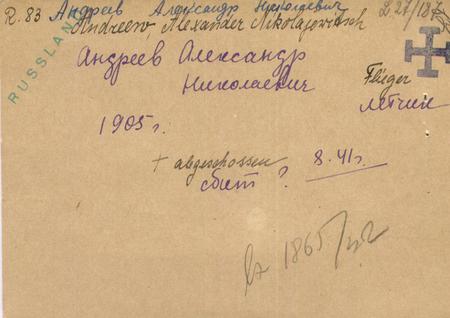 R. 83 Андреев Александр Николаевич
Andreew, Alexander Nikolajowitsch
RUSSLAND
Андреев Александр
Николаевич
Flieger
летчик
1905 г.
+ abgeschossen
сбит ? 8.41 г.
1865/42